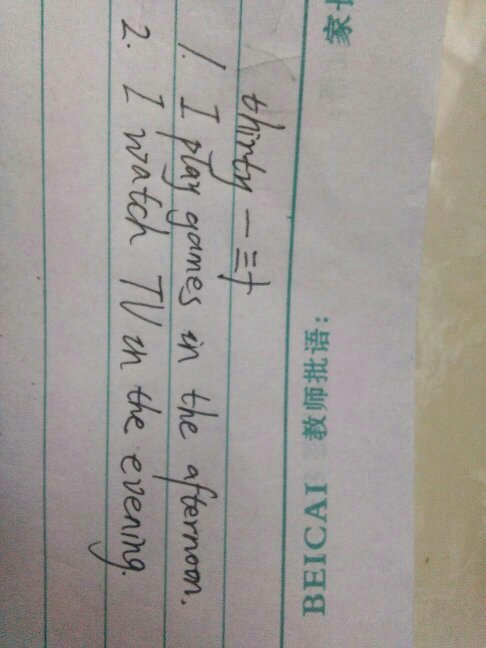 家长
BEICAI 教师批语:
thirty — 三十
1. I play games in the afternoon.
2. I watch TV in the evening.